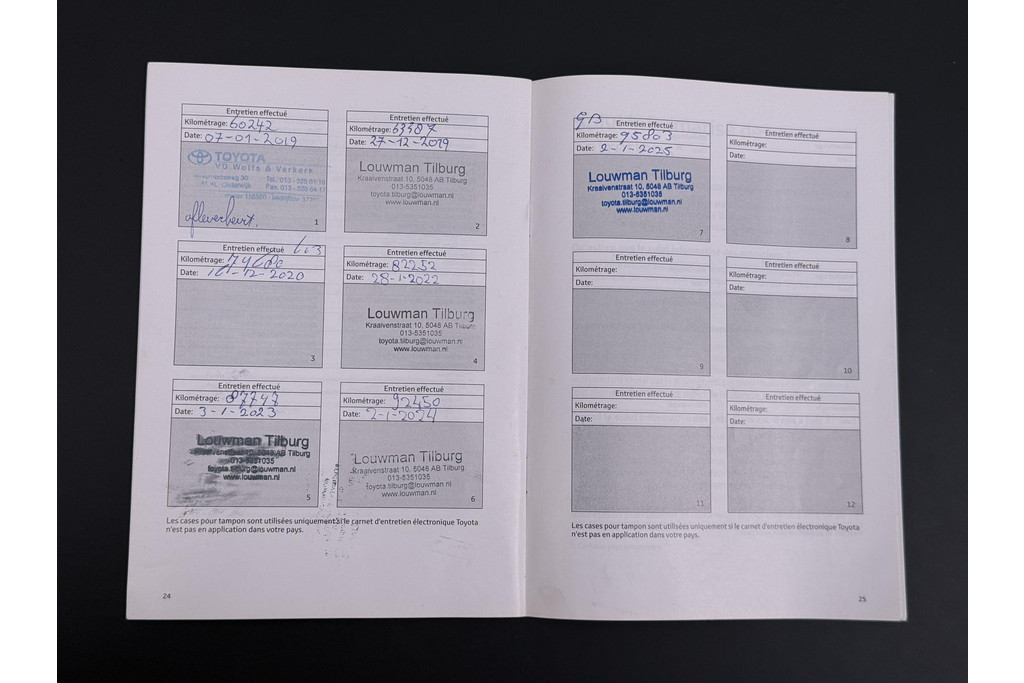 Entretien effectué
Kilométrage: 60242
Date: 07-01-2019
TOYOTA
VG Wolfs & Verkers
afleverbeurt.
1
Entretien effectué
Kilométrage: 63387
Date: 27-12-2019
Louwman Tilburg
Kraaivenstraat 10, 5048 AB Tilburg
013-5351035
toyota.tilburg@louwman.nl
www.louwman.nl
2
Entretien effectué
Kilométrage: 74680
Date: 16-12-2020
3
Entretien effectué
Kilométrage: 82252
Date: 28-1-2022
Louwman Tilburg
Kraaivenstraat 10, 5048 AB Tilburg
013-5351035
toyota.tilburg@louwman.nl
www.louwman.nl
4
Entretien effectué
Kilométrage: 87747
Date: 3-1-2023
Louwman Tilburg
Kraaivenstraat 10, 5048 AB Tilburg
013-5351035
toyota.tilburg@louwman.nl
www.louwman.nl
5
Entretien effectué
Kilométrage: 92450
Date: 2-1-2024
Louwman Tilburg
Kraaivenstraat 10, 5048 AB Tilburg
013-5351035
toyota.tilburg@louwman.nl
www.louwman.nl
6
Les cases pour tampon sont utilisées uniquement si le carnet d'entretien électronique Toyota
n'est pas en application dans votre pays.
24
GB
Entretien effectué
Kilométrage: 95803
Date: 2-1-2025
Louwman Tilburg
Kraaivenstraat 10, 5048 AB Tilburg
013-5351035
toyota.tilburg@louwman.nl
www.louwman.nl
7
Entretien effectué
Kilométrage:
Date:
8
Entretien effectué
Kilométrage:
Date:
9
Entretien effectué
Kilométrage:
Date:
10
Entretien effectué
Kilométrage:
Date:
11
Entretien effectué
Kilométrage:
Date:
12
Les cases pour tampon sont utilisées uniquement si le carnet d'entretien électronique Toyota
n'est pas en application dans votre pays.
25